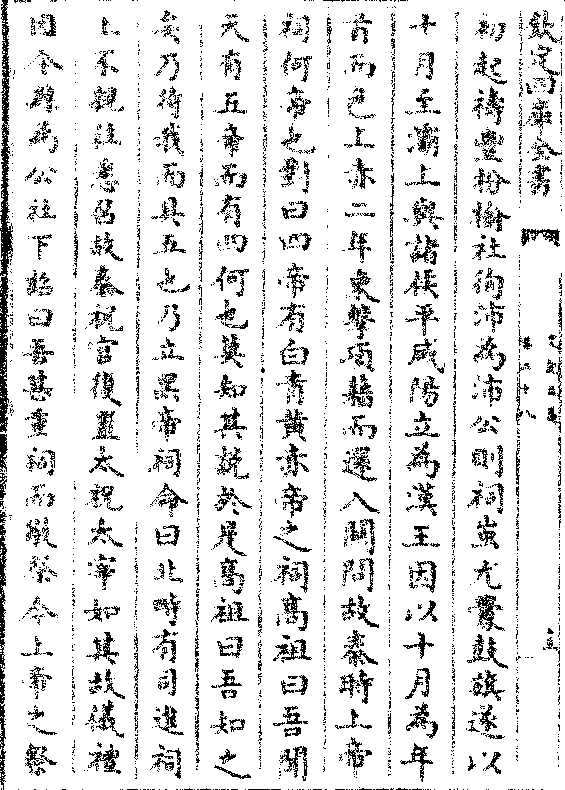 欽定四庫全書
初起禱豐枌榆社徇沛為沛公則祠蚩尤釁鼓旗遂以
十月至灞上與諸侯平咸陽立為漢王因以十月為年
首而色上赤二年東擊項籍而還入關問故秦時上帝
祠何帝也對曰四帝有白青黃赤帝之祠高祖曰吾聞
天有五帝而有四何也莫知其說於是高祖曰吾知之
矣乃待我而具五也乃立黑帝祠命曰北畤有司進祠
上不親往悉召故秦祝官復置太祝太宰如其故儀禮
因令縣為公社下詔曰吾甚重祠而敬祭今上帝之祭